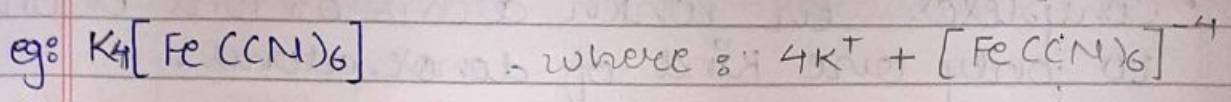 eg: K4[Fe(CN)6] - where : 4K⁺ + [Fe(CN)6]⁻⁴